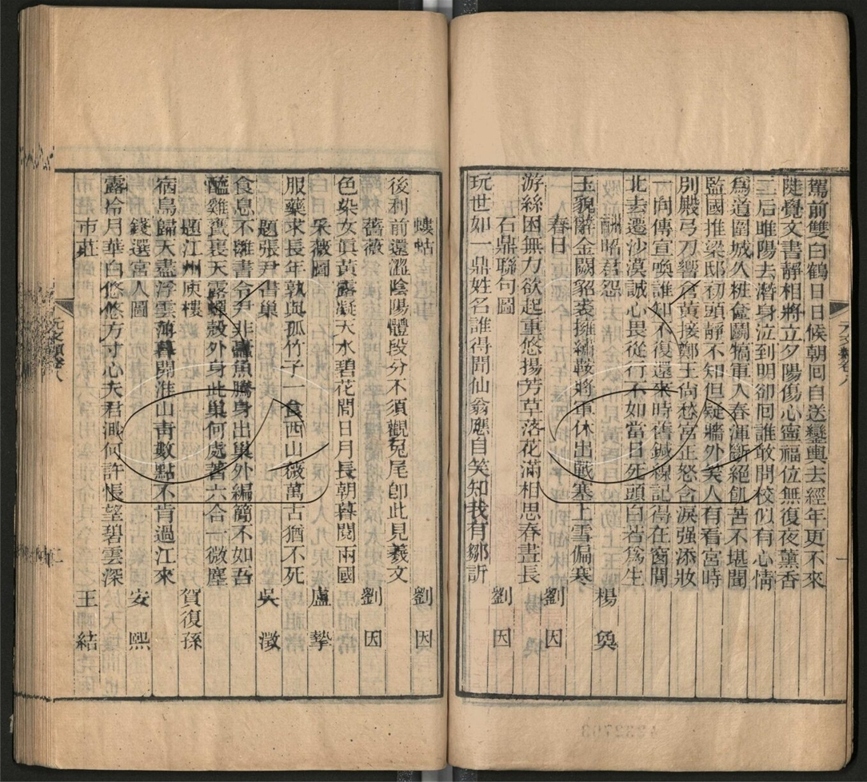 駕前雙白鶴日日候朝囘自送鑾輿去經年更不來
陡覺文書靜相將立夕陽傷心寧福位無復夜薰香
二后睢陽去潛身泣到明卻囘誰敢問校似有心情
爲道圍城久妝奩鬬犒軍入春渾斷絕飢苦不堪聞
監國推梁邸初頭靜不知但疑牆外笑人有看宮時
別殿弓刀響倉黃接鄭王尚愁宮正怒含淚强添妝
一向傳宣喚誰知不復還來時舊鍼線記得在窗間
北去遷沙漠誠心畏從行不如當日死頭白若爲生
酬昭君怨 楊奐
玉貌辭金闕貂裘擁繡鞍將軍休出戰塞上雪偏寒
春日 劉因
游絲困無力欲起重悠揚芳草落花滿相思春晝長
石鼎聯句圖 劉因
玩世如一鼎姓名誰得聞仙翁應自笑知我有鄒訢
蛄 劉因
後利前還澀陰陽體段分不須觀兔尾卽此見羲文
薔薇 劉因
色染女眞黃露凝天水碧花間日月長朝暮閱兩國
采薇圖 盧摯
服藥求長年孰與孤竹子一食西山薇萬古猶不死
題張尹書巢 吳澂
食息不離書令尹非蠹魚騰身出巢外編簡不如吾
醯雞甕裹天露殼外身此巢何處著六合一微塵
題江州庾樓 賀復孫
宿鳥歸天盡浮雲薄暮開淮山靑數點不肯過江來
錢選宮人圖 安熙
露冷月華白悠悠方寸心夫君渺何許悵望碧雲深
市莊 王結
元文類卷八
二